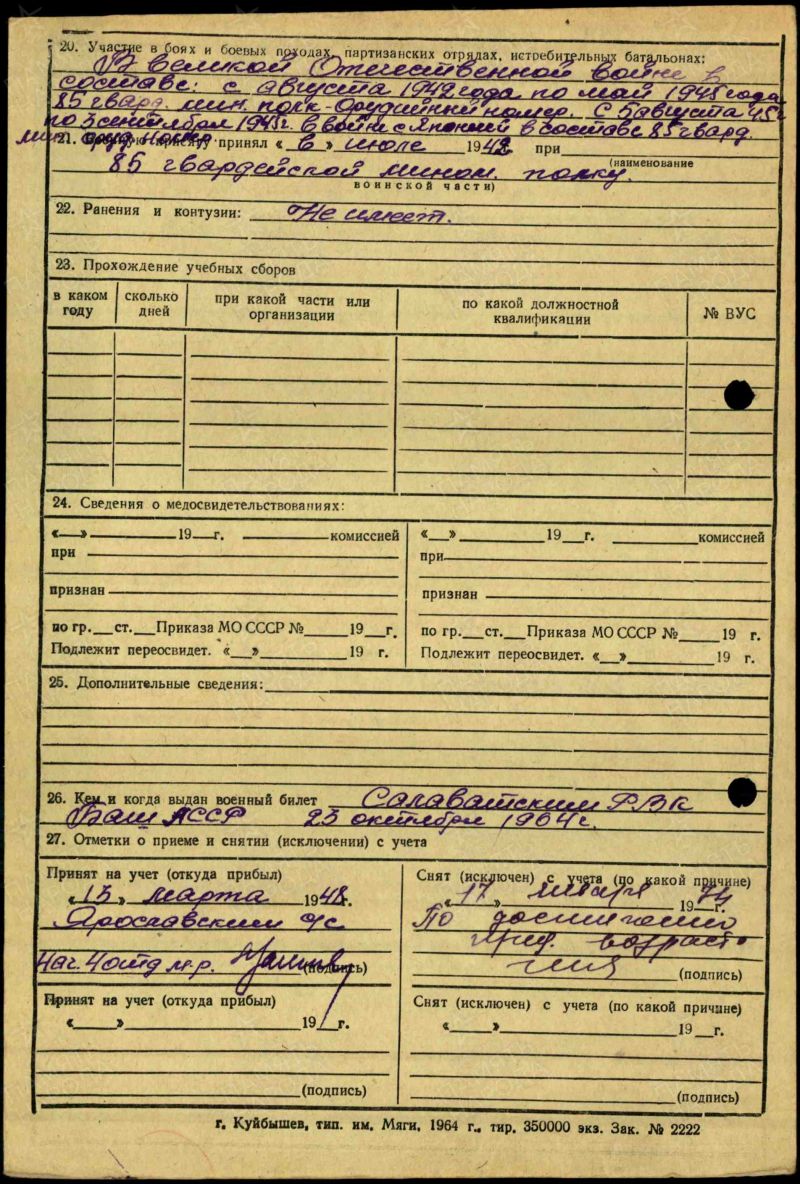 20. Участие в боях и боевых походах, партизанских отрядах, истребительных батальонах:
В великой Отечественной войне в
составе: с августа 1942 года по май 1945 года
85 гвард. мин. полк-орудийный номер. С 5 августа 45 г
по 3 сентября 1945г. в войне с Японией в составе 85 гвард.
мин.
21. принял « 6 » июле 1942 при
(наименование
85 гвардейской мином. полку.
воинской части)
22. Ранения и контузии: Не имеет.
23. Прохождение учебных сборов
в каком году
сколько дней
при какой части или организации
по какой должностной квалификации
№ ВУС
24. Сведения о медосвидетельствованиях:
«__» ______ 19__г. ______ комиссией
при
признан
по гр.__ст.__Приказа МО СССР №____ 19__г.
Подлежит переосвидет. «__» ______ 19 г.
«__» ______ 19__г. ______ комиссией
при
признан
по гр.__ст.__Приказа МО СССР №____ 19 г.
Подлежит переосвидет. «__» ______ 19 г.
25. Дополнительные сведения:
26. Кем и когда выдан военный билет Салаватским РВК
Баш АССР 23 октября 1964 г.
27. Отметки о приеме и снятии (исключении) с учета
Принят на учет (откуда прибыл)
« 13 » марта 1948г.
Ярославским с/с
Нач. 4 отд м.р. (подпись)
Снят (исключен) с учета (по какой причине)
« 17 » января 1974г.
По достижению
пред. возраста
(подпись)
Принят на учет (откуда прибыл)
«____» ______ 19__г.
(подпись)
Снят (исключен) с учета (по какой причине)
«____» ______ 19__г.
(подпись)
г. Куйбышев, тип. им. Мяги, 1964 г., тир. 350000 экз. Зак. № 2222